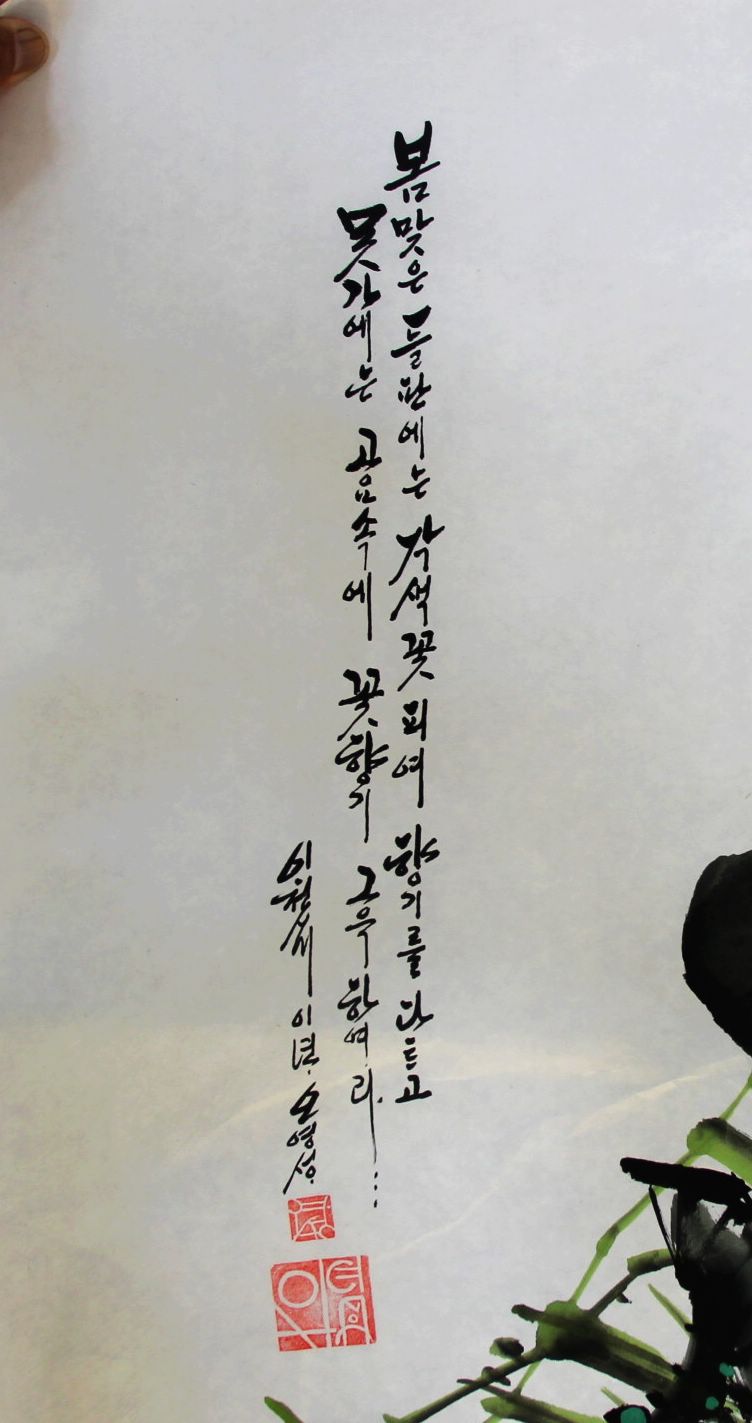 봄맞은 들판에는 각색꽃 피여 향기를 다듬고
못가에는 고요속에 꽃향기 그윽하여라....
이천십이년. 오영성.